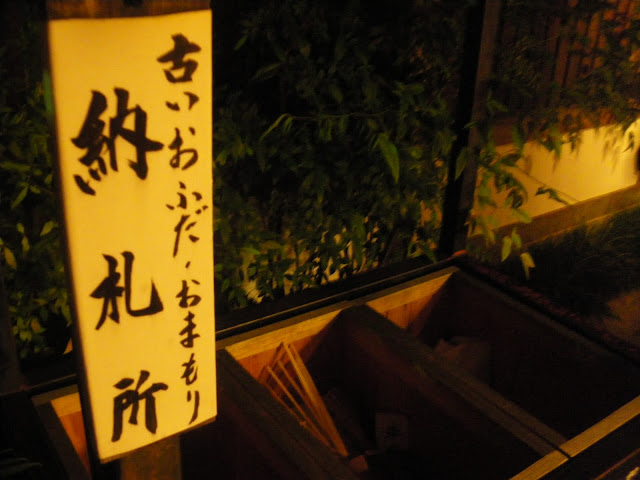 古いおふだ、おまもり
納札所